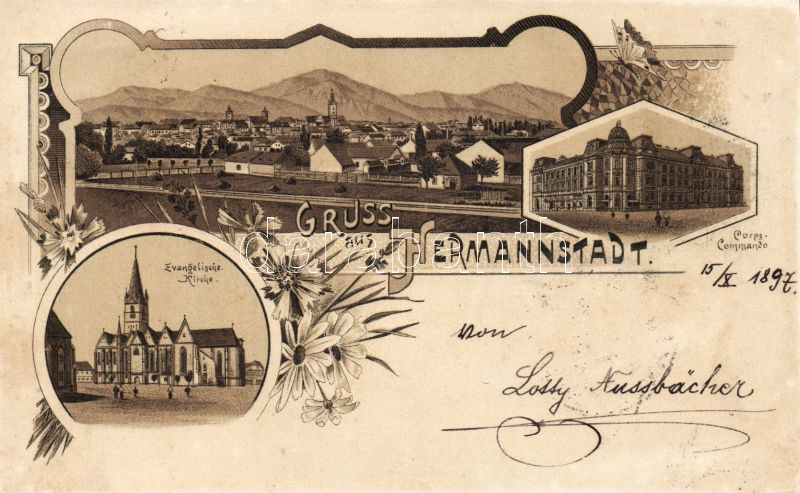 GRUSS
aus
HERMANNSTADT.
Corps-
Commando
Evangelische
Kirche.
15/X 1897.
von
Lossy Nussbächer
darabanth